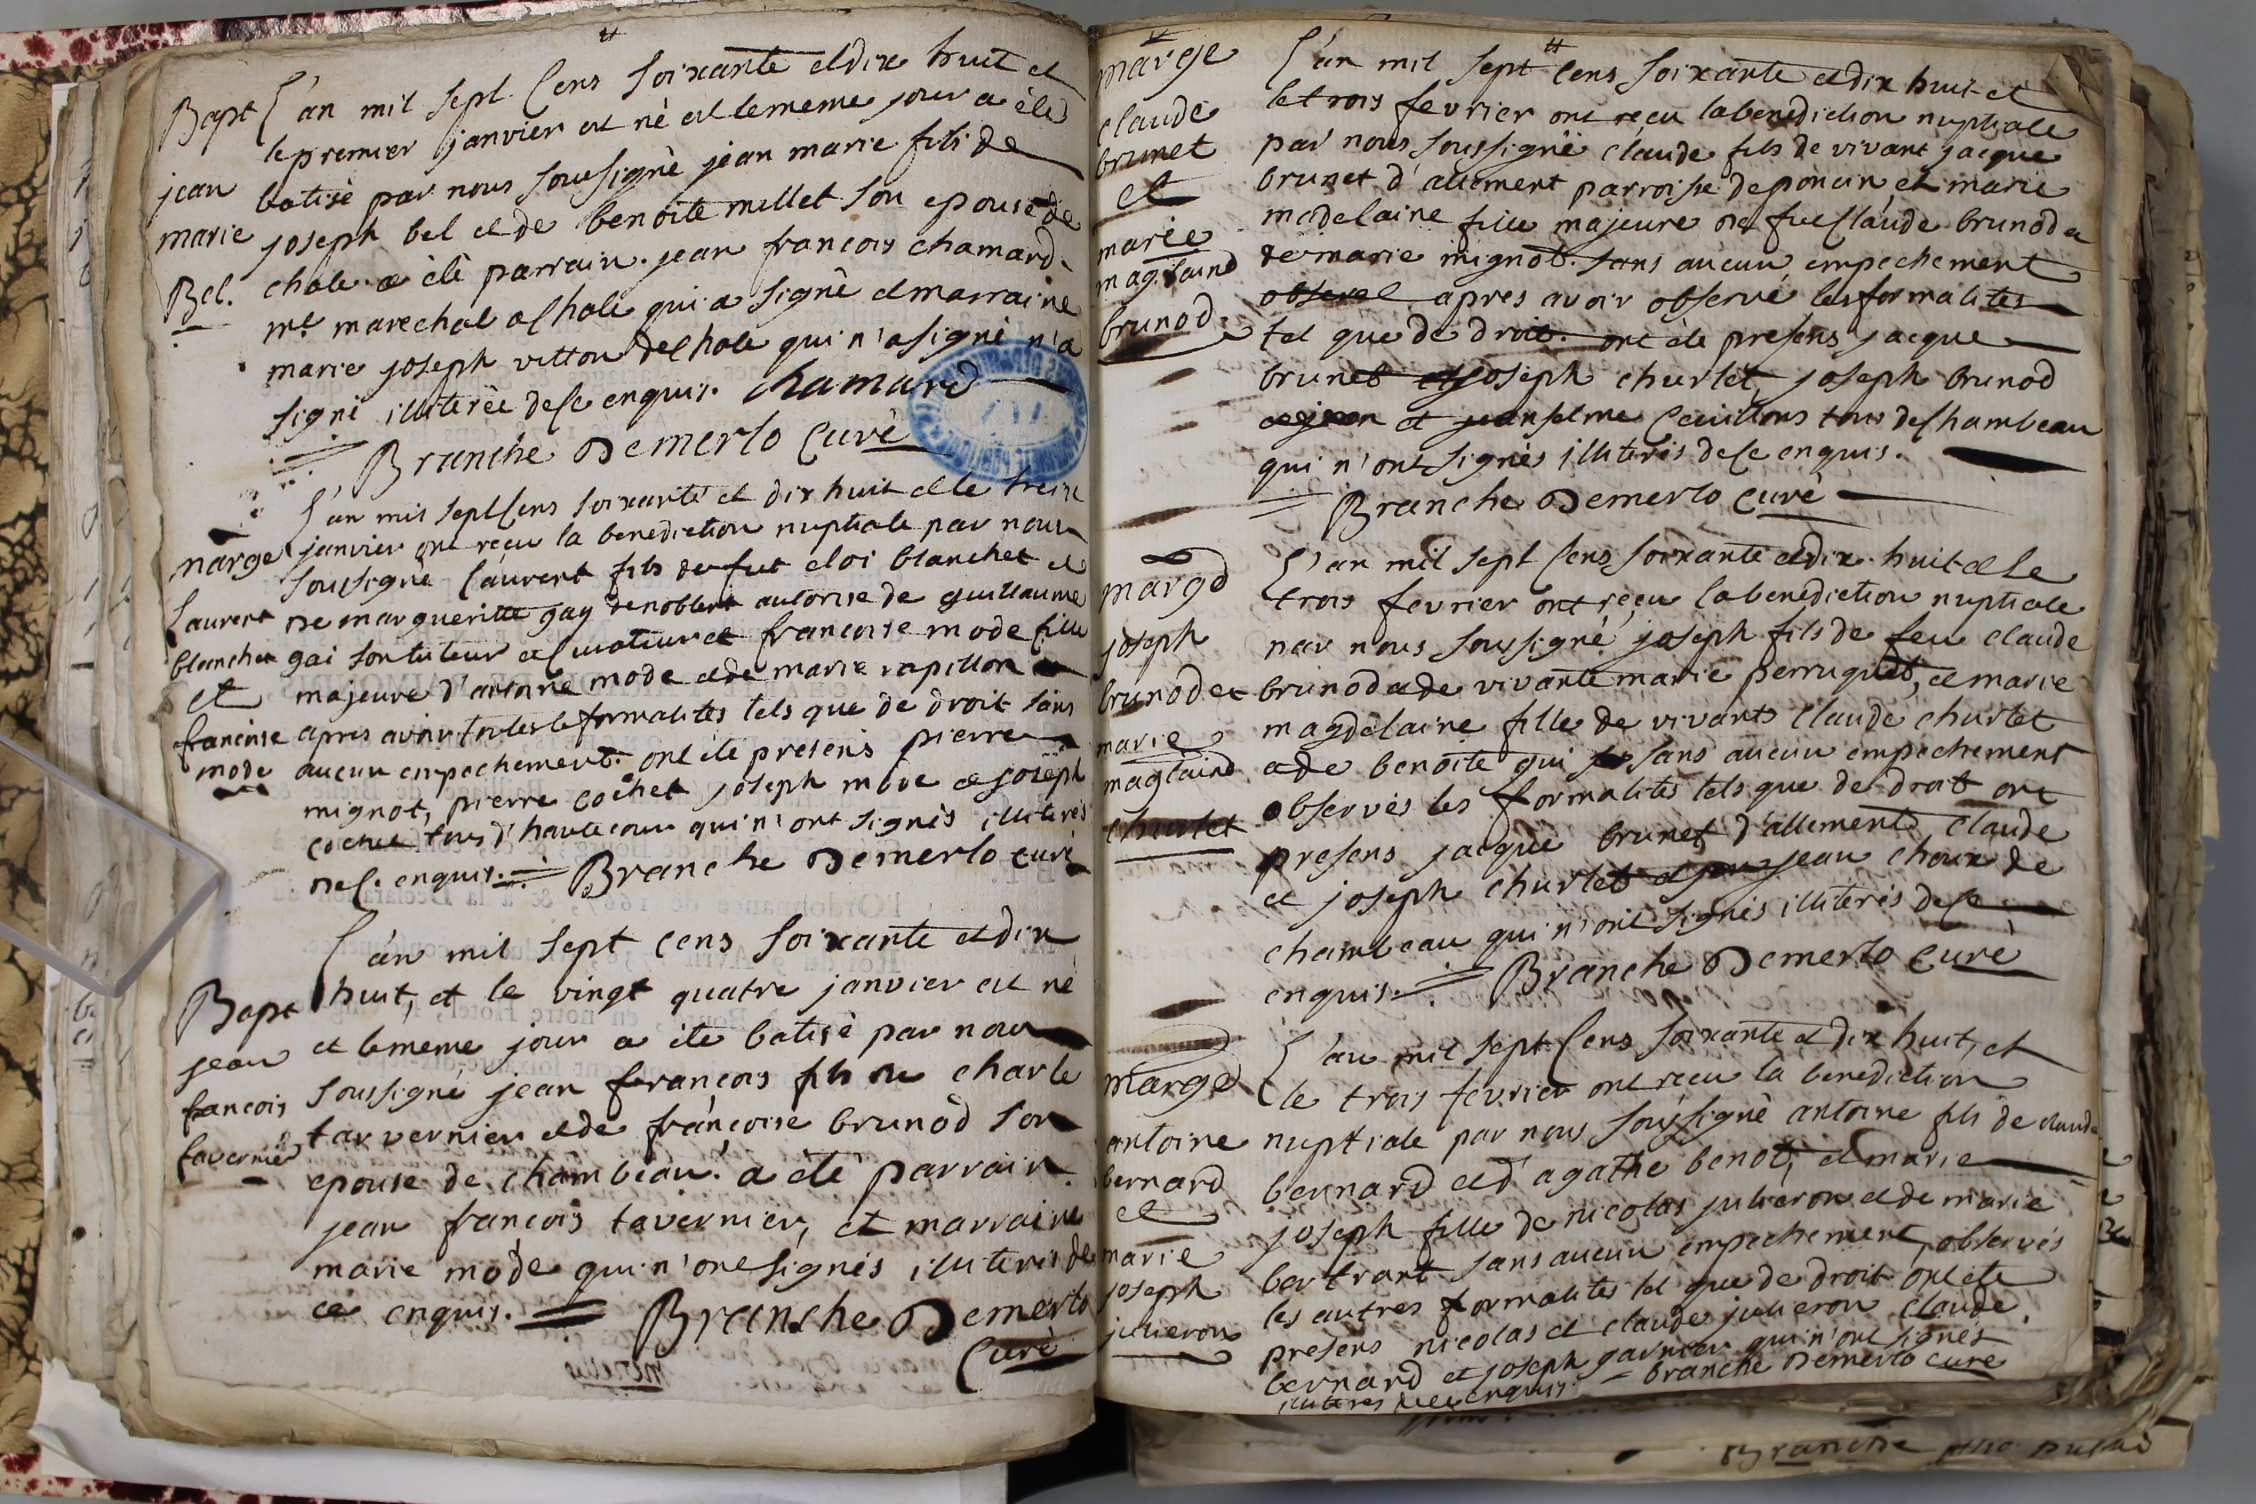 Bapt
jean
marie
Bel.
L'an mil sept Cens soixante et dix huit et
le premier janvier est né et le meme jour a èté
batisè par nous soussignè jean marie fils de
joseph bel et de benoite millet son epouse de
chale a èlè parrain. jean francois chamard
me marechal a Chale qui a signè et marraine
marie joseph vitton de Chale qui n'a signè n'a
signè illiterèe de Ce enquis. Chamard
Branche Demerlo Curè
marge
Laurent
blanchet
et
francoise
mode
L'an mil sept Cens soixante et dix huit et le treize
janvier ont reçu la benediction nuptiale par nous
soussignè Laurent fils de fut eloi blanchet et
de margueritte gay de noblens autorise de guillaume
gai son tuteur et Curateur et francoise mode fille
majeure d'antoine mode et de marie rapillon
apres avoir toutes le formalites tels que de droit sans
aucun empechement. ont ete presens pierre
mignot, pierre cochet joseph mode et joseph
cochet tous d'hautecour qui n'ont signès illiterès
de C. enquis. Branche Demerlo curè
Bapt
jean
francois
tavernier
L'an mil sept Cens soixante et dix
huit, et le vingt quatre janvier est né
et le meme jour a ète batisè par nous
soussigné jean francois fils de charle
tarvernier et de françoise brunod son
epouse de chambeau. a èté parrain
jean francois tavernier, et marraine
marie mode qui n'ont signès illiteris de
ce enquis. Branche Demerlo
Curè
marge
claude
brunet
et
marie
brunod
L'an mil sept Cens soixante et dix huit et
le trois fevrier ont reçu la benediction nuptiale
par nous soussigné claude fils de vivant jacque
brunet d'allement parroisse de poncin, et marie
madelaine fille majeure de fue Claude brunod et
de marie mignot. sans aucun empechement
apres avoir observé les formalites
tel que de droit. ont ete presens jacque
brunet joseph churlet, joseph brunod
et jeanselme Cevillons tous de Chambeau
qui n'ont signès illiteris de Ce enquis.
Branche Demerlo curè
joseph
brunod et
marie
churlet
L'an mil sept Cens soixante et dix huit et le
trois fevrier ont reçu la benediction nuptiale
par nous soussigné joseph fils de feu claude
brunod et de vivante marie perruquet, et marie
magdelaine fille de vivants Claude churlet
et de benoite qui sans aucun empechement
observès les formalites tels que de droit ont
presens jacque brunet d'allement, claude
et joseph churlet jean choux de
chambeau qui n'ont signès illiterès de Ce
enquis. Branche Demerlo Curè
marge
antoine
bernard
et
marie
joseph
julieron
L'an mil sept Cens soixante et dix huit, et
le trois fevrier ont recu la benediction
nuptiale par nous soussignè antoine fils de claude
bernard et d'agathe benot, et marie
joseph fille de nicolas julieron et de marie
bertrant sans aucun empechement, observés
les autres formalites tel que de droit ont ete
presens nicolas et claude julieron, claude
bernard et joseph garnier qui n'ont signès
illiteres de Ce enquis. = branche Demerlo curè
Branche